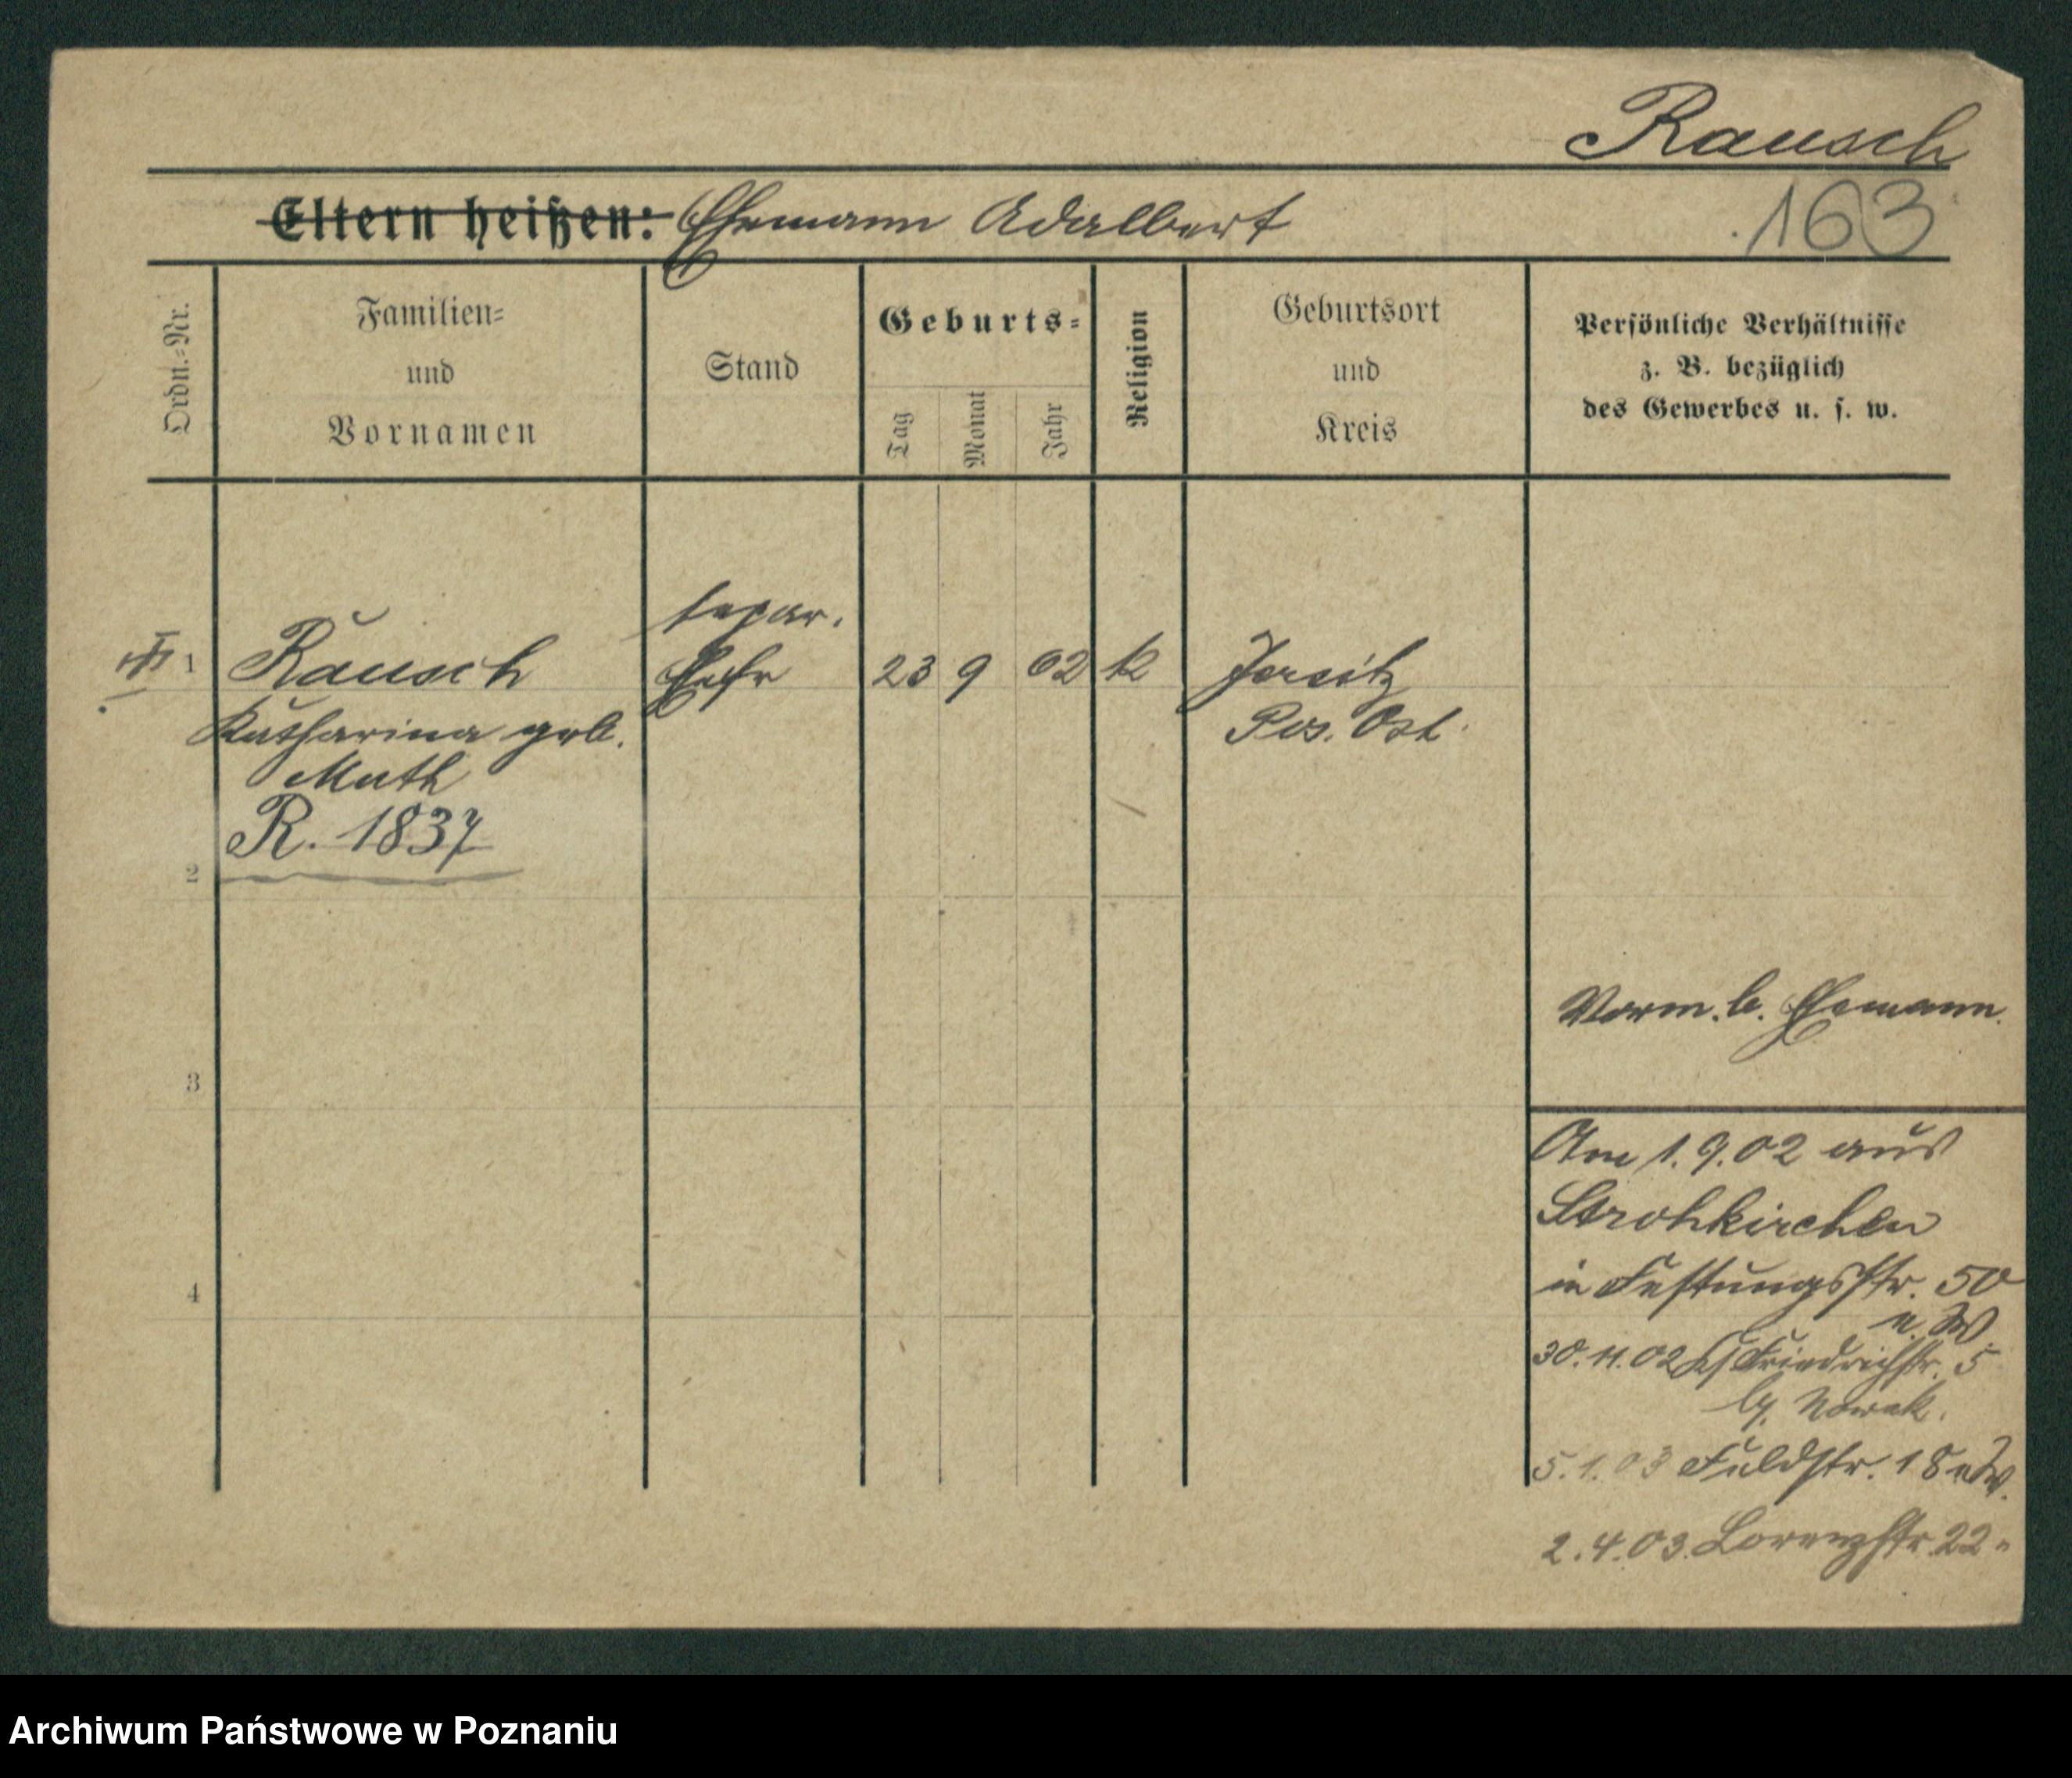 Rausch
Eltern heißen: Ehemann Adalbert
163
Ordn.-Nr.
Familien-
und
Vornamen
Stand
Geburts-
Tag
Monat
Jahr
Religion
Geburtsort
und
Kreis
Persönliche Verhältnisse
z. B. bezüglich
des Gewerbes u. s. w.
separ.
III 1 Rausch Ehefr 23 9 02 k Jersitz
Katharina geb. Pos. Ost.
Muth
R. 1837
2
Vorm. b. Ehemann.
3
Am 1.9.02 aus
Strohkirchen
in Festungsstr. 50
e. W.
4
30.11.02 Friedrichstr. 5
by. Nowak.
5.1.03 Feldstr. 18 e.W.
2.4.03. Lorenzstr. 22 "
Archiwum Państwowe w Poznaniu